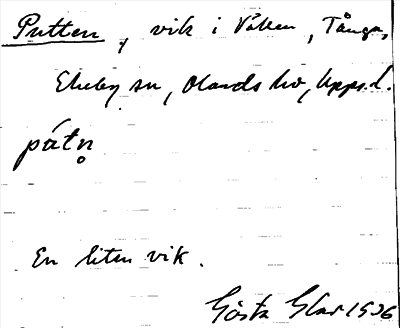 Putten, vik i Vällen, Tånga,
Ekeby sn, Olands hd, Upps.l.
pát̥n
En liten vik.
Gösta 1936